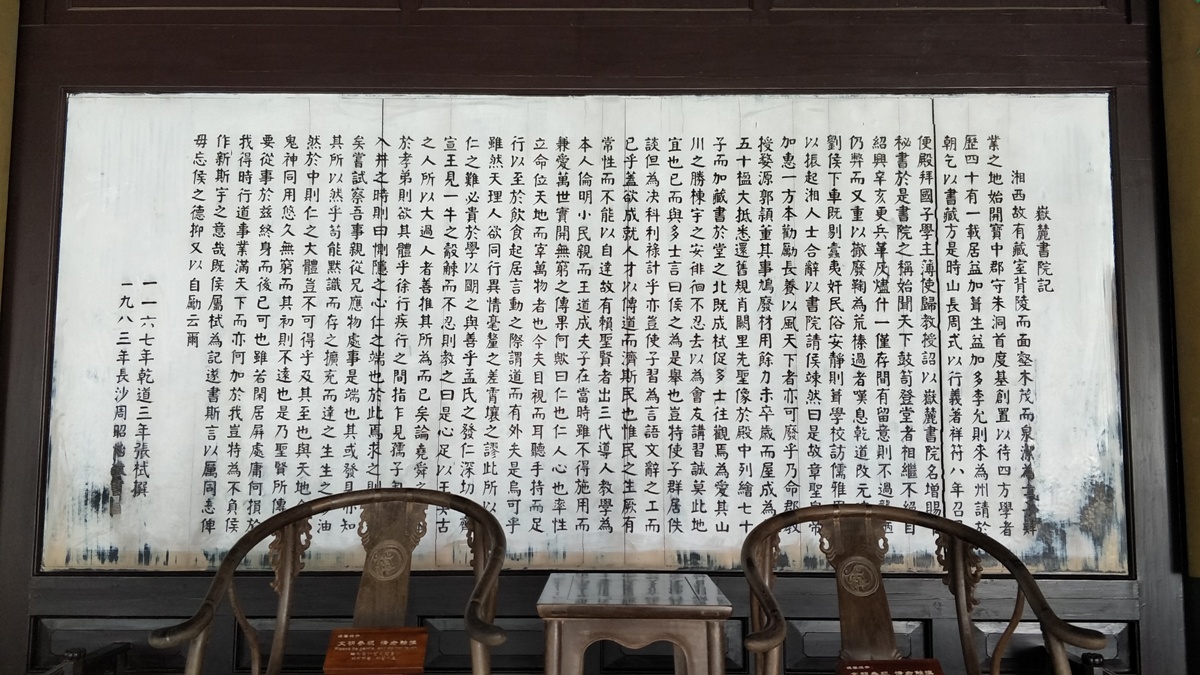 嶽麓書院記
湘西故有藏室背陵而面壑木茂而泉潔為士
業之地始開寶中郡守朱洞首度基創置以待四方學者
歷四十有一載居益加葺生益加多李允則來為州請於
朝乞以書藏方是時山長周式以行義著祥符八年召
便殿拜國子學主簿使歸教授詔以嶽麓書院名增賜
秘書於是書院之稱始聞天下鼓笥登堂者相繼不絕自
紹興辛亥更兵革灰燼什一僅存間有留意則不過襲陋
仍弊而又重以撤廢鞠為荒榛過者嘆息乾道改元建
劉侯下車既剔蠹夷奸民俗安靜則葺學校訪儒雅
以振起湘人士合辭以書院請侯竦然曰是故章聖皇帝
加惠一方本勸勵長養以風天下者亦可廢乎乃命郡教
授婺源郭穎董其事鳩廢材用餘力未卒歲而屋成為
五十楹大抵悉還舊規肖闕里先聖像於殿中列繪七十
子而加藏書於堂之北既成栻促多士往觀焉為愛其山
川之勝棟宇之安徘徊不忍去以為會友講習誠莫此地
宜也已而與多士言曰侯之為是舉也豈特使子群居佚
談但為決科利祿計乎亦豈使子習為言語文辭之工而
已乎蓋欲成就人才以傳道而濟斯民也惟民之生厥有
常性而不能以自達故有賴聖賢者出三代導人教學為
本人倫明小民親而王道成夫子在當時雖不得施用而
兼愛萬世實開無窮之傳果何歟曰仁也仁人心也率性
立命位天地而宰萬物者也今夫目視而耳聽手持而足
行以至於飲食起居言動之際謂道而有外夫是烏可乎
雖然天理人欲同行異情毫釐之差霄壤之謬此所以
仁之難必貴於學以明之與善乎孟氏之發仁深切
宣王見一牛之觳觫而不忍則教之曰是心足以王矣古
之人所以大過人者善推其所為而已矣論堯舜之
於孝弟則欲其體乎徐行疾行之間指乍見孺子
入井之時則曰惻隱之心仁之端也於此焉求之則
矣嘗試察吾事親從兄應物處事是端也其或發見亦知
其所以然乎苟能默識而存之擴充而達之生生之妙油
然於中則仁之大體豈不可得乎及其至也與天地合
鬼神同用悠久無窮而其初則不遠也是乃聖賢所傳
要從事於茲終身而後已可也雖若閑居屏處庸何損於
我得時行道事業滿天下而亦何加於我豈特為不負侯
作新斯宇之意哉既侯屬栻為記遂書斯言以厲同志俾
毋忘侯之德抑又以自勵云爾
一一六七年乾道三年張栻撰
一九八三年長沙周昭怡